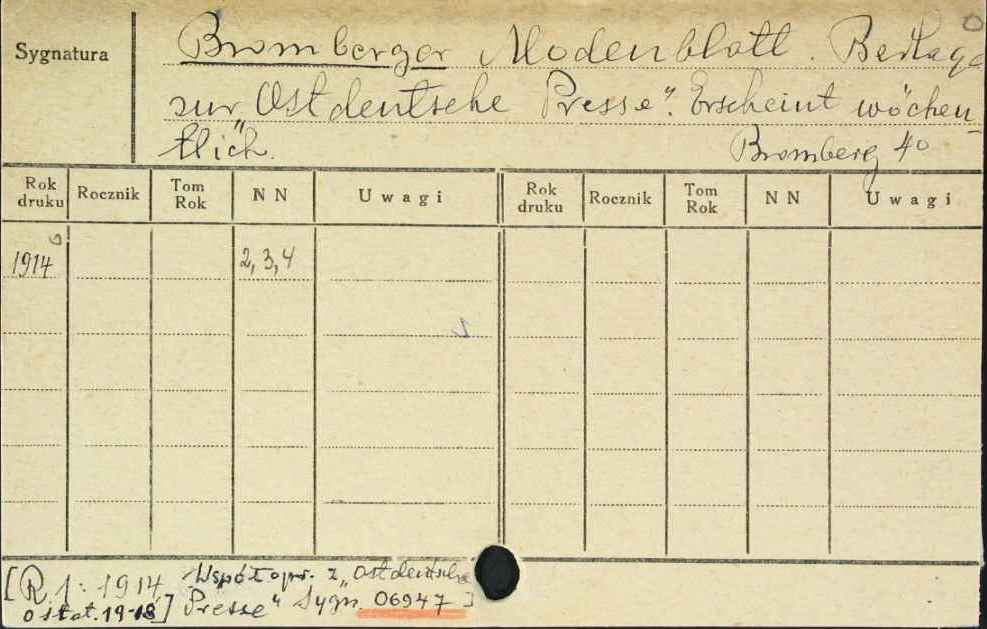 Sygnatura
Bromberger Modenblatt. Beilage
zur „Ostdeutsche Presse". Erscheint wöchen-
tlich.
Bromberg 4°
Rok druku Rocznik Tom Rok NN Uwagi Rok druku Rocznik Tom Rok NN Uwagi
1914 2, 3, 4
[R 1: 1914 Współopr. z „Ostdeutsche
ostat. 1918] Presse" Sygn. 06947]